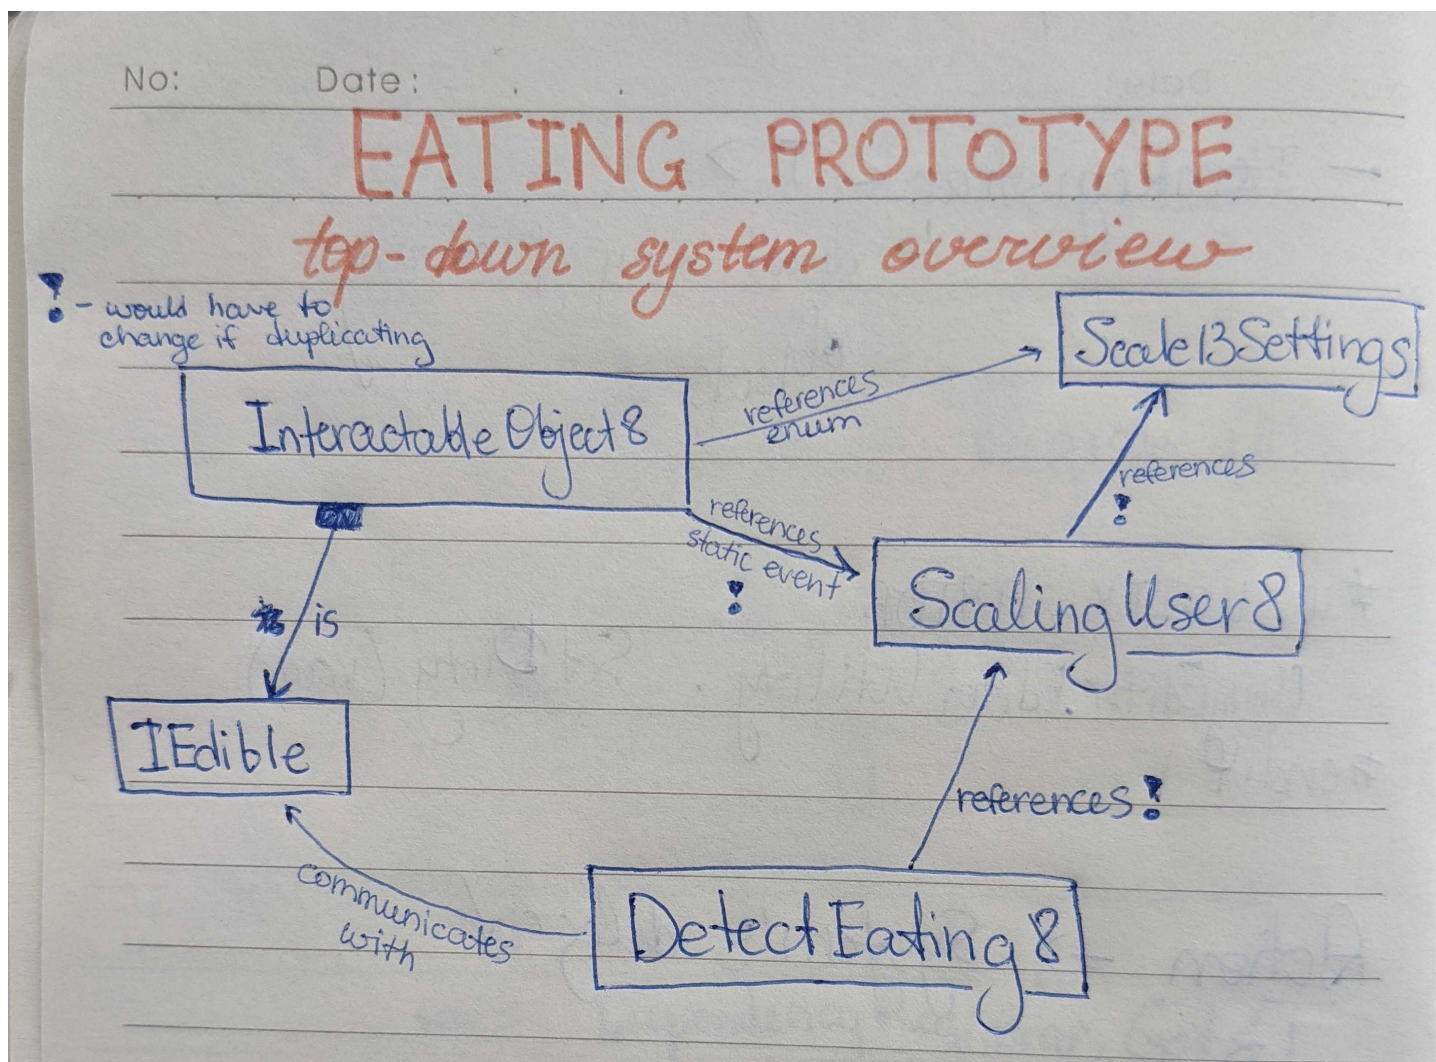 No: Date: . .
EATING PROTOTYPE
top-down system overview
! - would have to
change if duplicating
Scale13Settings
InteractableObject8
references
enum
references
!
references
static event
!
ScalingUser8
is
IEdible
references!
communicates
with
DetectEating8